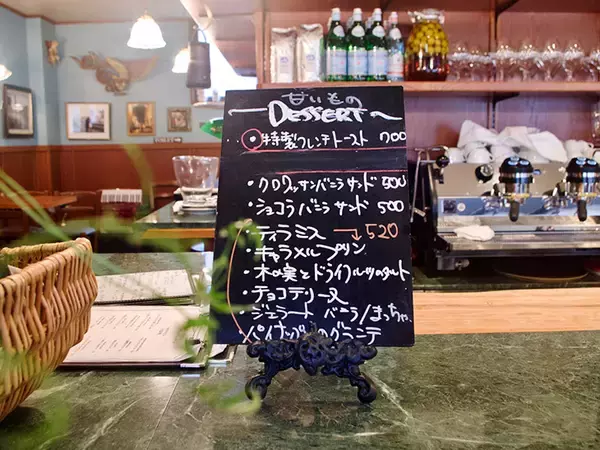 甘いもの
DESSERT
・特製フレンチトースト 700
・クロワッサンバニラサンド 500
・ショコラバニラサンド 500
・ティラミス →520
・キャラメルプリン
・木の実とドライフルーツのタルト
・チョコテリーヌ
・ジェラート バニラ/まっちゃ
・パイナップルのグラニテ